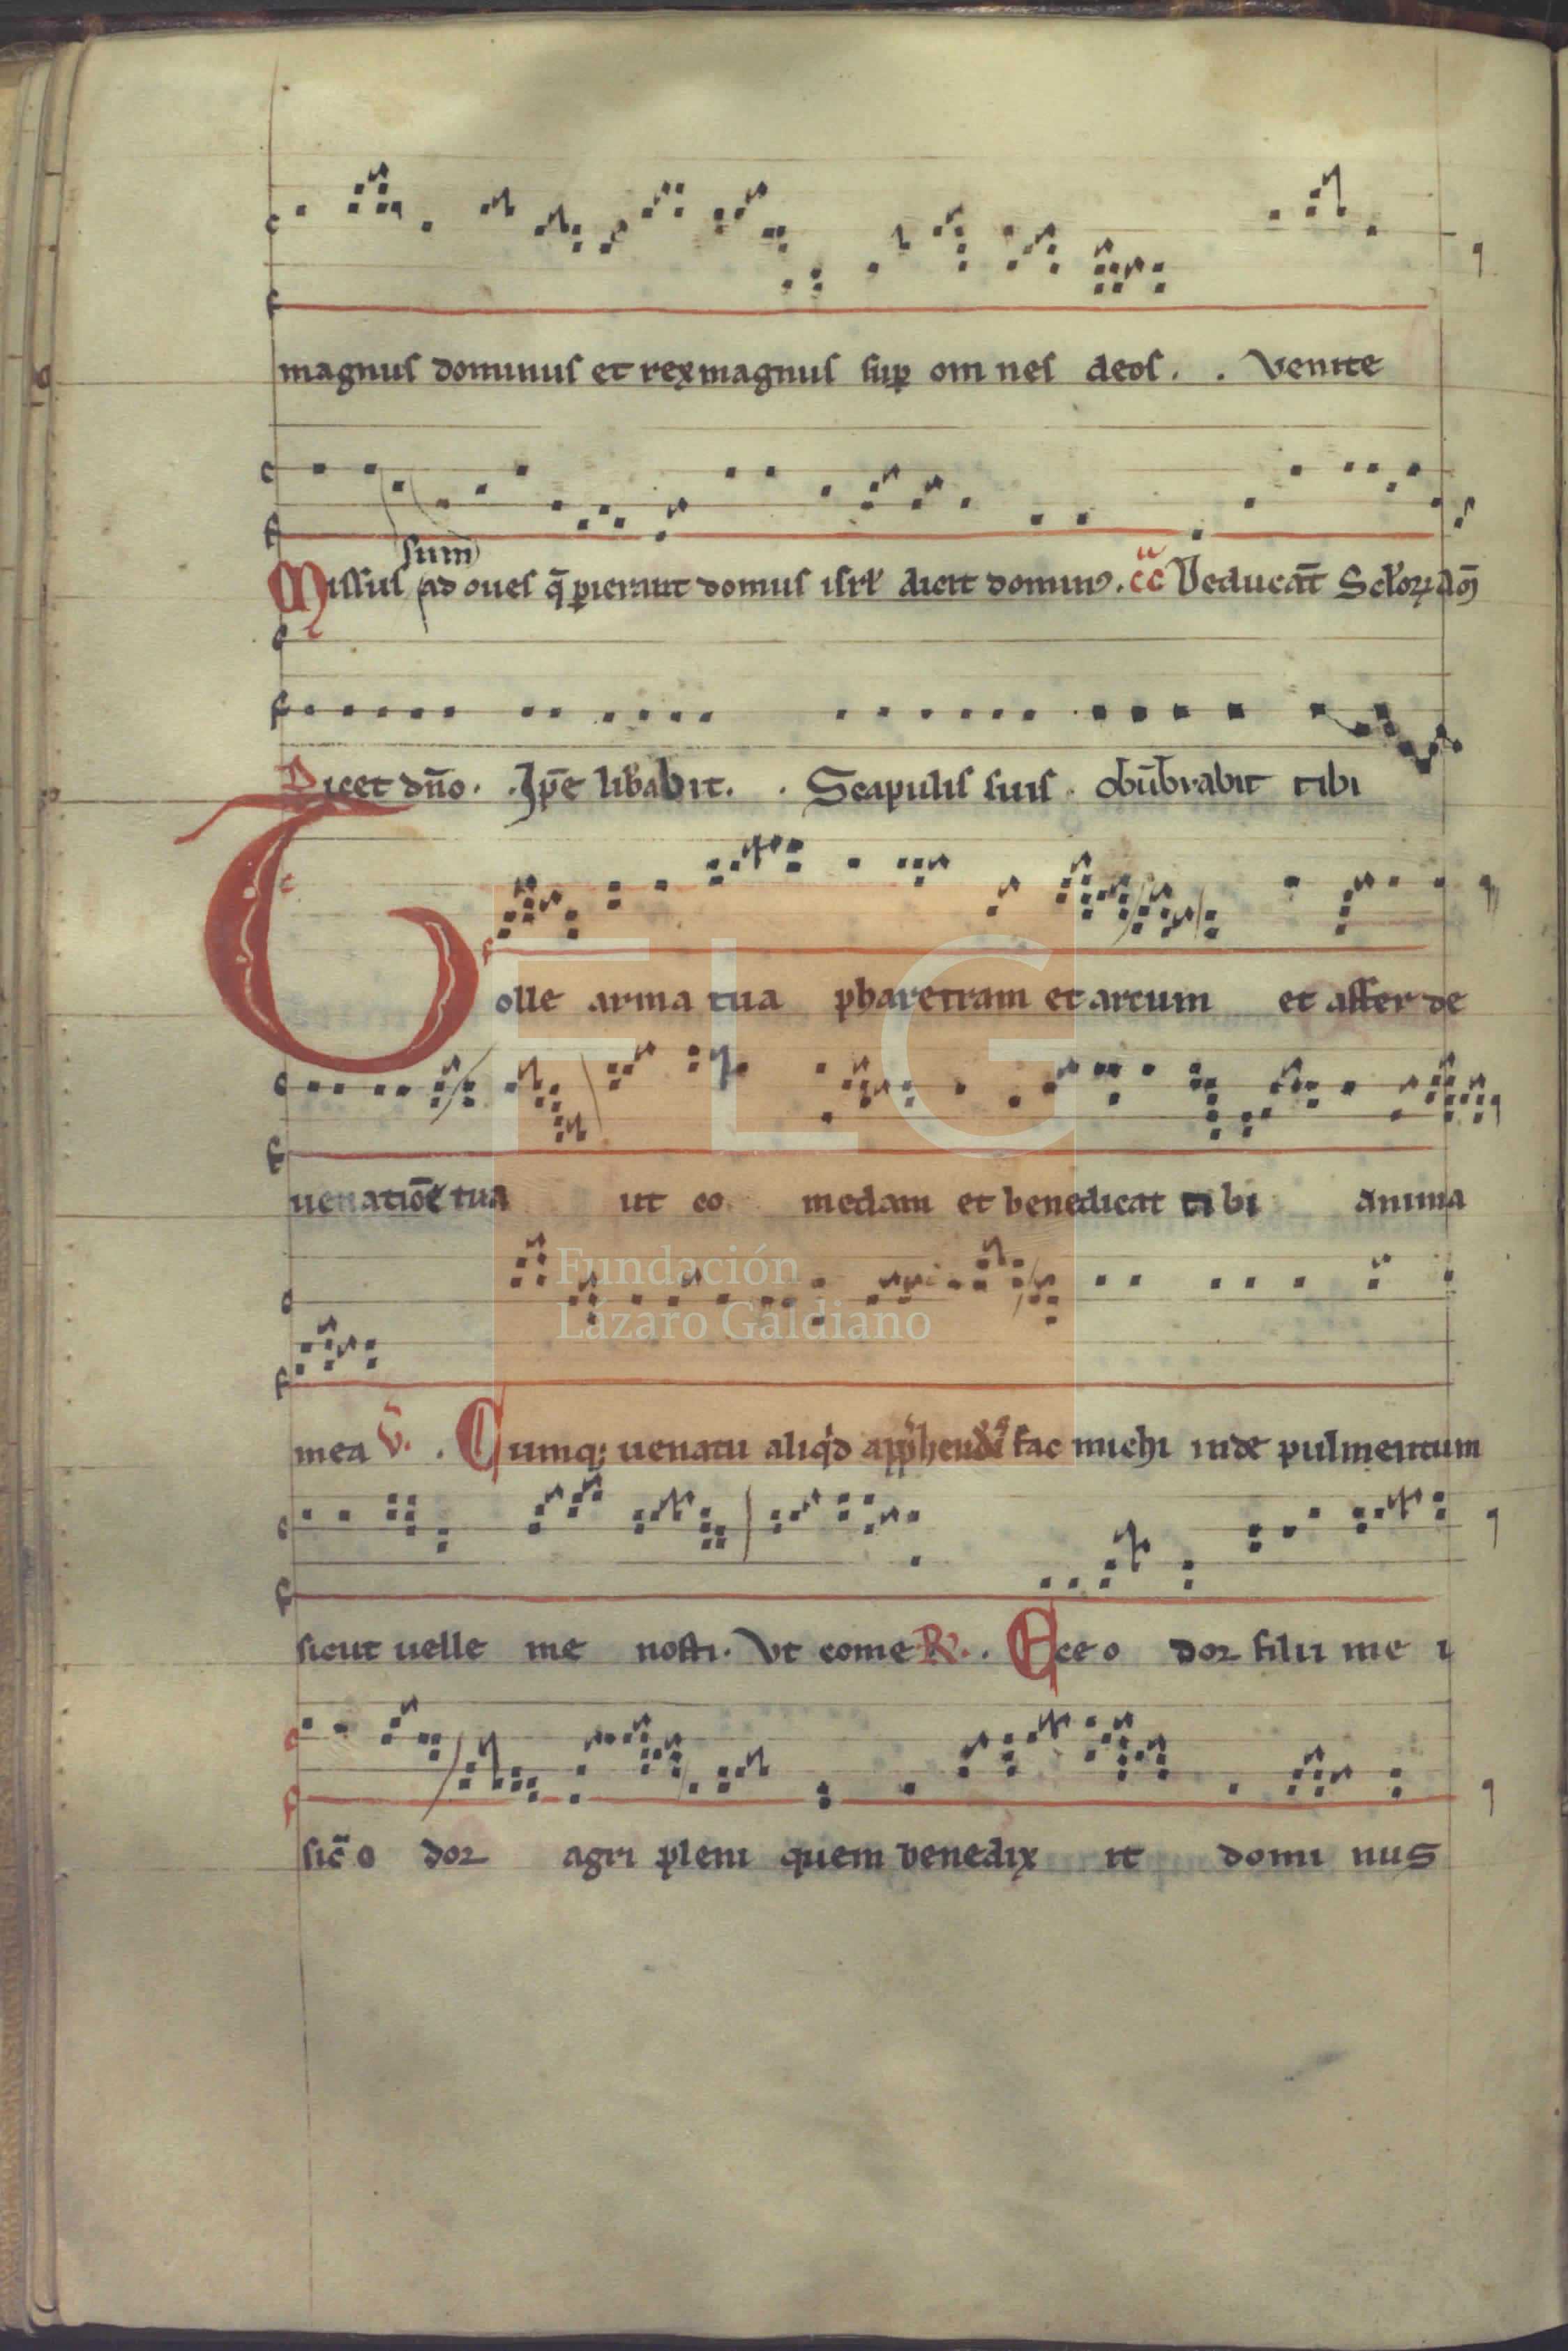 magnus dominus et rex magnus sup om nes deos . . venite
sum
Missus ad oues q̄ perierant domus isrl dicit dominꝰ . Deducāt Sclorꝝ
Dicet dn̄o . . Ip̄e lib̄abit . . Scapulis suis . obūbrabit tibi
Tolle arma tua pharetram et arcum et affer de
uenatiōe tua ut co medam et benedicat ti bi anima
mea v̄. . Cumq; uenatu aliq'd app'henderis fac michi inde pulmentum
sicut uelle me nosti . vt come R . . Ecce o dor filii me i
sic̄ o dor agri pleni quem benedix it domi nus
FLG
Fundación
Lázaro Galdiano